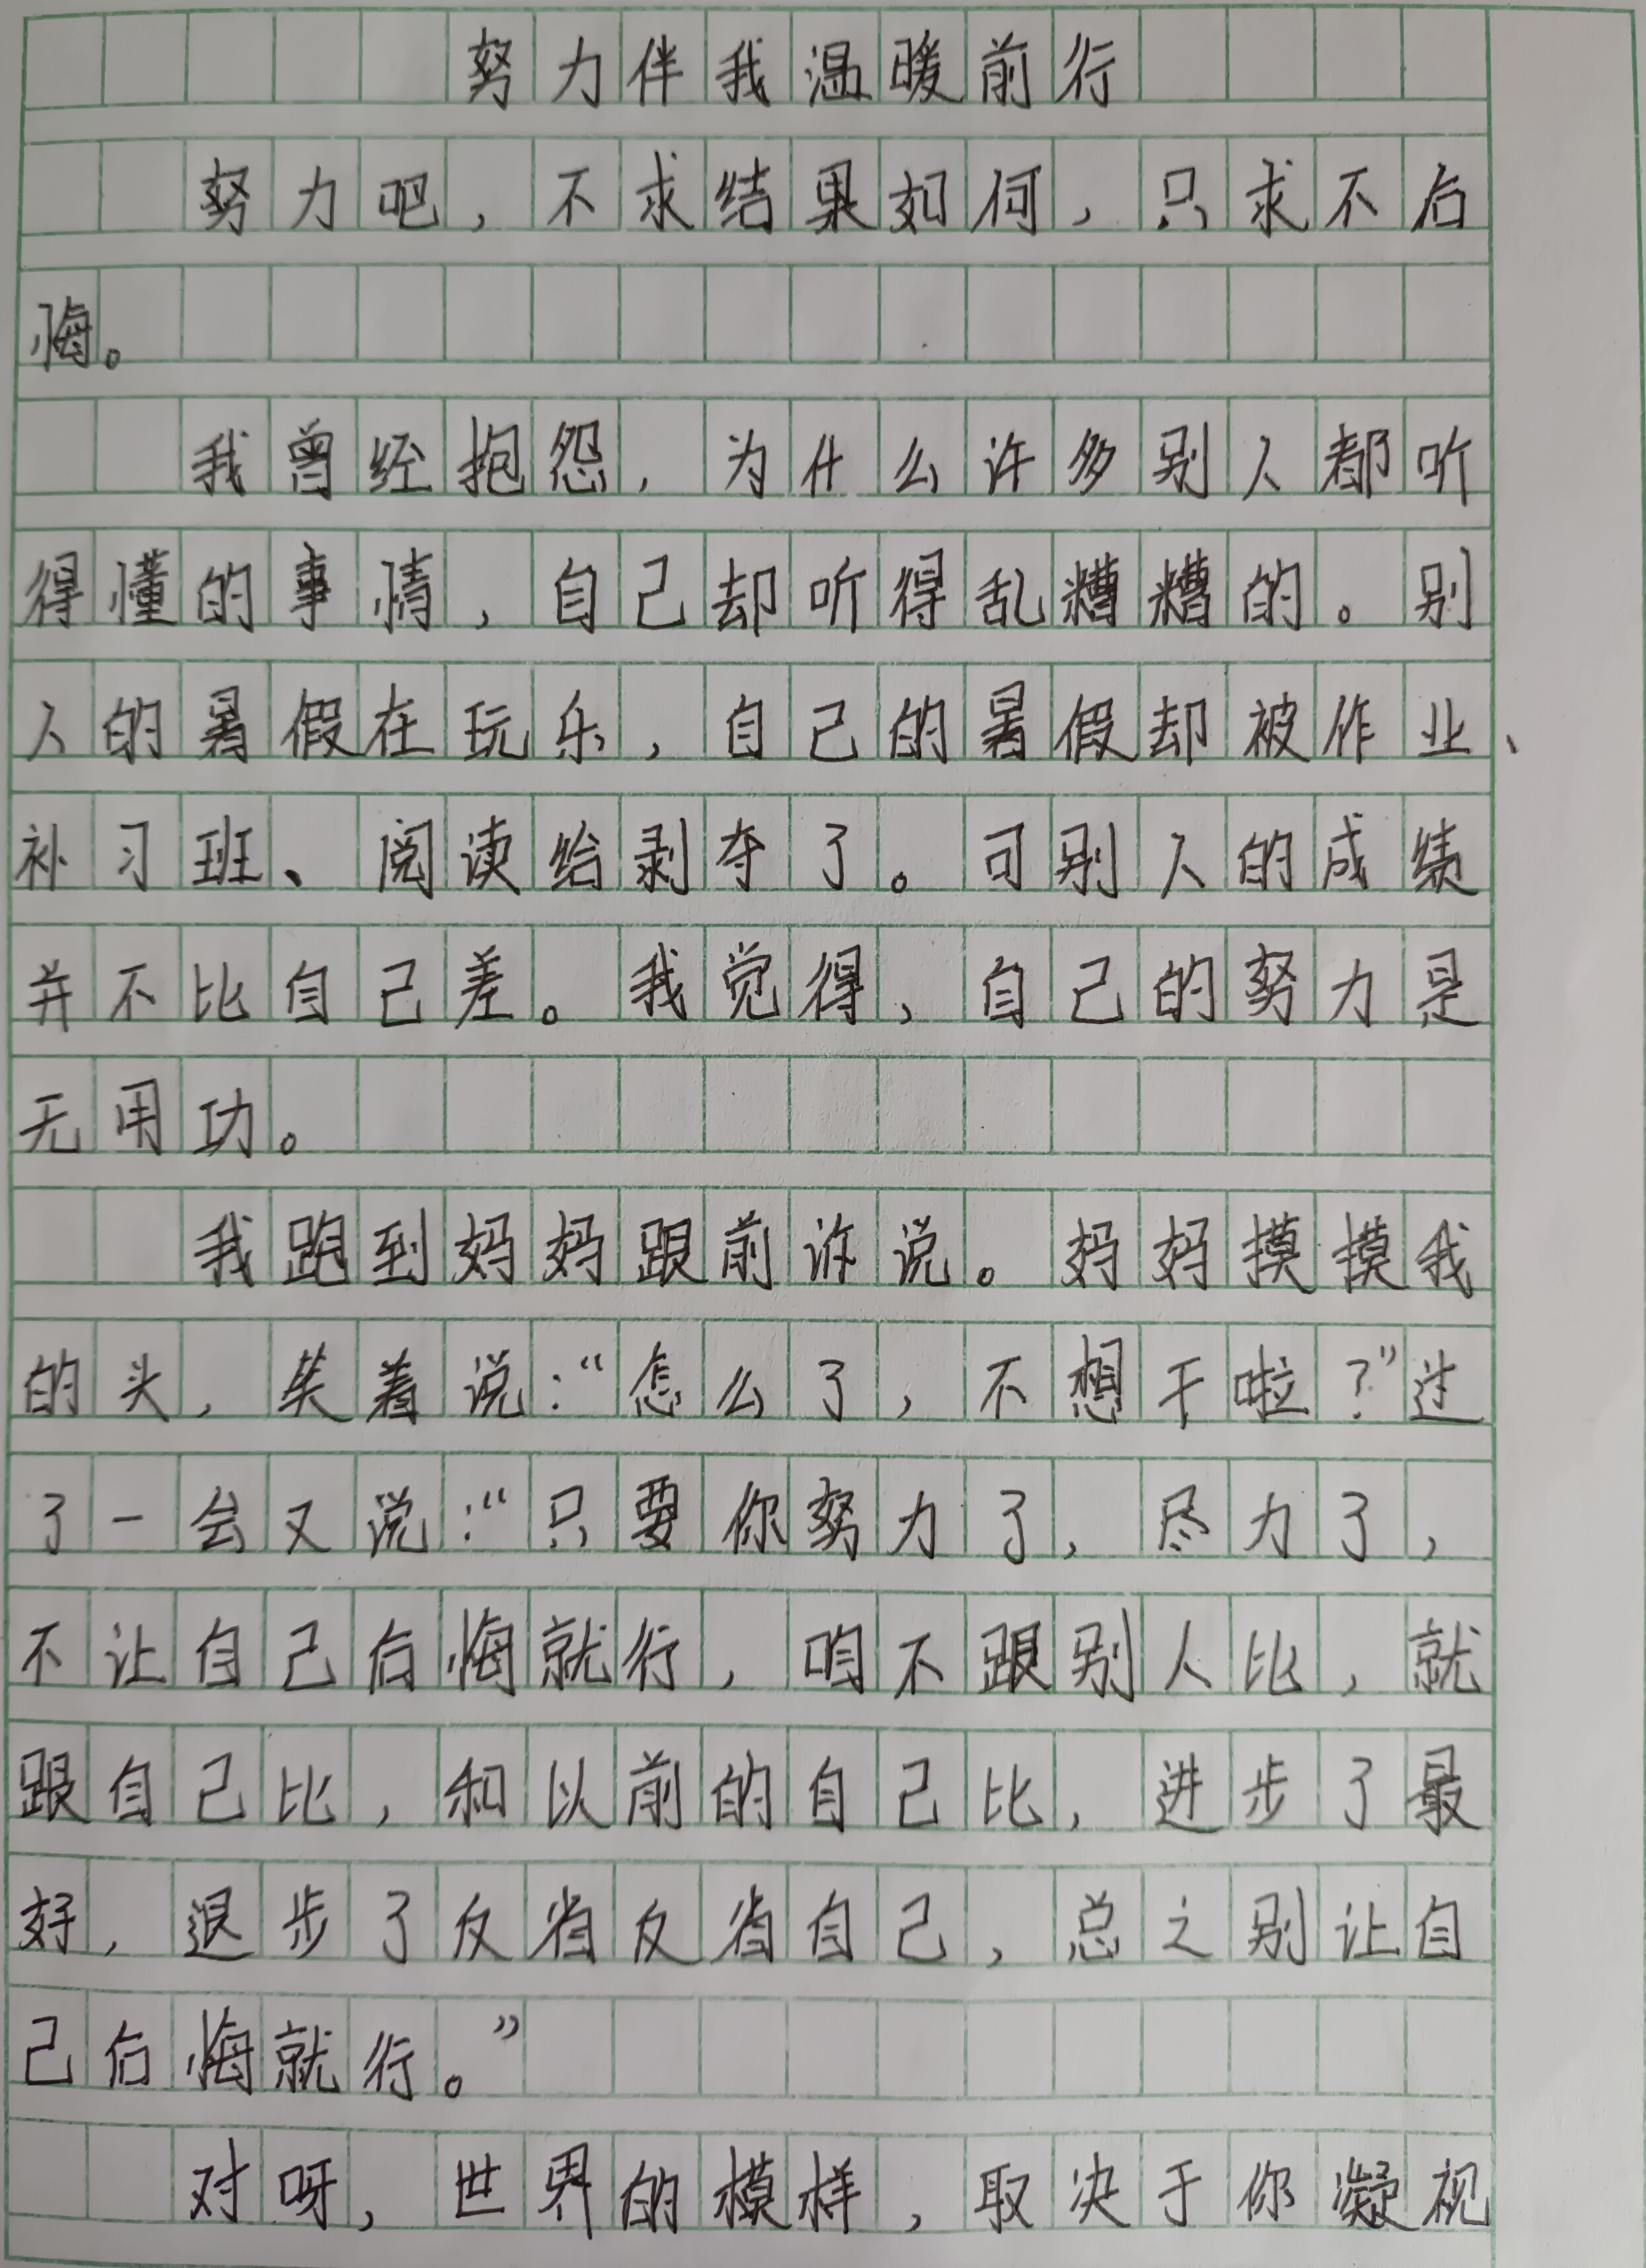 努力伴我温暖前行
努力吧，不求结果如何，只求不后
悔。
我曾经抱怨，为什么许多别人都听
得懂的事情，自己却听得乱糟糟的。别
人的暑假在玩乐，自己的暑假却被作业、
补习班、阅读给剥夺了。可别人的成绩
并不比自己差。我觉得，自己的努力是
无用功。
我跑到妈妈跟前诉说。妈妈摸摸我
的头，笑着说：“怎么了，不想干啦？”过
了一会又说：“只要你努力了，尽力了，
不让自己后悔就行，咱不跟别人比，就
跟自己比，和以前的自己比，进步了最
好，退步了反省反省自己，总之别让自
己后悔就行。”
对呀，世界的模样，取决于你凝视